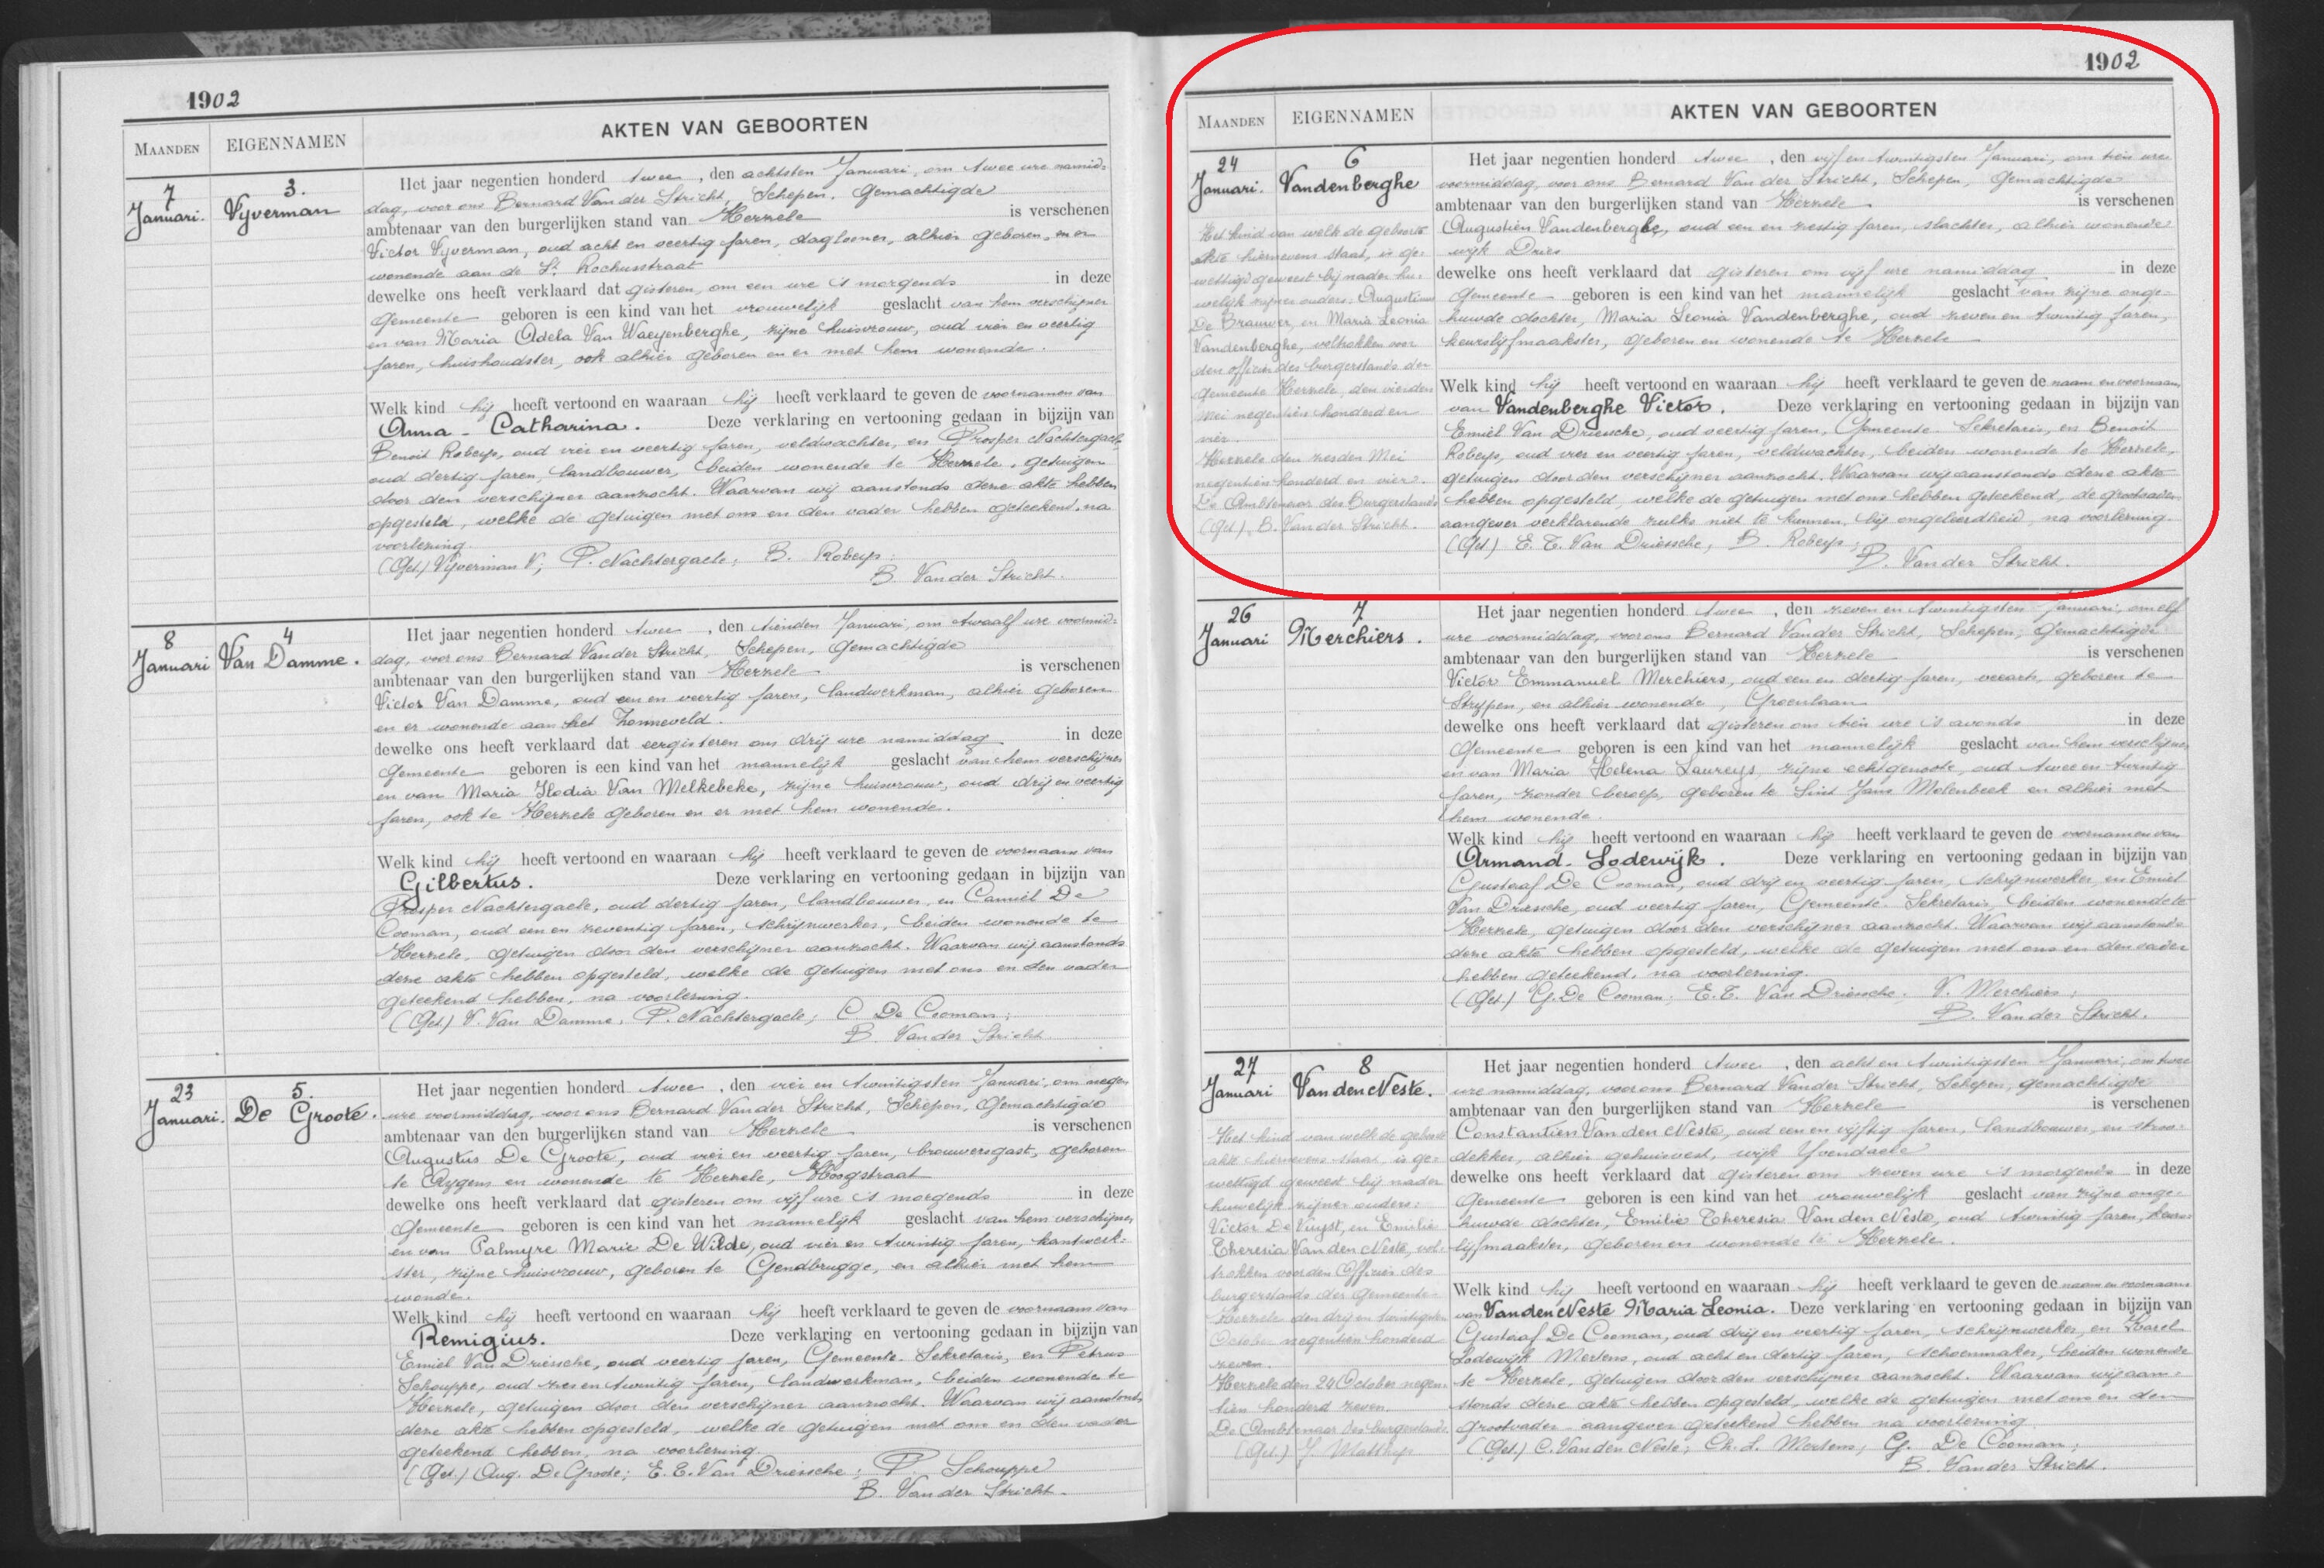 1902
MAANDEN
EIGENNAMEN
AKTEN VAN GEBOORTEN
7
Januari.
3.
Vyverman
Het jaar negentien honderd twee, den achtsten Januari, om twee ure namid-
dag, voor ons Bernard Van der Stricht, Schepen, Gemachtigde
ambtenaar van den burgerlijken stand van Herzele is verschenen
Victor Vyverman, oud acht en veertig jaren, daglooner, alhier geboren, en er
wonende aan de St. Rochusstraat
dewelke ons heeft verklaard dat gisteren, om een ure 's morgends in deze
Gemeente geboren is een kind van het vrouwelijk geslacht van hem verschijner
en van Maria Adela Van Waeyenberghe, zijne huisvrouw, oud vier en veertig
jaren, huishoudster, ook alhier geboren en er met hem wonende.
Welk kind hij heeft vertoond en waaraan hij heeft verklaard te geven de voornamen van
Anna - Catharina. Deze verklaring en vertooning gedaan in bijzijn van
Benoit Robeys, oud vier en veertig jaren, veldwachter, en Prosper Nachtergaele,
oud dertig jaren, landbouwer, beiden wonende te Herzele, getuigen
door den verschijner aanzocht. Waarvan wij aanstonds deze akte hebben
opgesteld, welke de getuigen met ons en den vader hebben geteekend, na
voorlezing.
(Get.) Vyverman V; P. Nachtergaele; B. Robeys;
B. Van der Stricht.
8
Januari
4
Van Damme.
Het jaar negentien honderd twee, den tienden Januari, om twaalf ure voormid-
dag, voor ons Bernard Van der Stricht, Schepen, Gemachtigde
ambtenaar van den burgerlijken stand van Herzele is verschenen
Victor Van Damme, oud een en veertig jaren, landwerkman, alhier geboren
en er wonende aan het Zonneveld.
dewelke ons heeft verklaard dat eergisteren om drij ure namiddag in deze
Gemeente geboren is een kind van het mannelijk geslacht van hem verschijner
en van Maria Ilodia Van Melkebeke, zijne huisvrouw, oud drij en veertig
jaren, ook te Herzele geboren en er met hem wonende.
Welk kind hij heeft vertoond en waaraan hij heeft verklaard te geven de voornaam van
Gilbertus. Deze verklaring en vertooning gedaan in bijzijn van
Prosper Nachtergaele, oud dertig jaren, landbouwer, en Camiel De
Cooman, oud een en zeventig jaren, schrijnwerker, beiden wonende te
Herzele, getuigen door den verschijner aanzocht. Waarvan wij aanstonds
deze akte hebben opgesteld, welke de getuigen met ons en den vader
geteekend hebben, na voorlezing.
(Get.) V. Van Damme, P. Nachtergaele; C. De Cooman;
B. Van der Stricht.
23
Januari.
5.
De Groote.
Het jaar negentien honderd twee, den vier en twintigsten Januari, om negen
ure voormiddag, voor ons Bernard Van der Stricht, Schepen, Gemachtigde
ambtenaar van den burgerlijken stand van Herzele is verschenen
Augustus De Groote, oud vier en veertig jaren, brouwersgast, geboren
te Aygem en wonende te Herzele, Hoogstraat
dewelke ons heeft verklaard dat gisteren om vijf ure 's morgends in deze
Gemeente geboren is een kind van het mannelijk geslacht van hem verschijner
en van Palmyre Marie De Wilde, oud vier en twintig jaren, kantwerk-
ster, zijne huisvrouw, geboren te Gendbrugge, en alhier met hem
wonende.
Welk kind hij heeft vertoond en waaraan hij heeft verklaard te geven de voornaam van
Remigius. Deze verklaring en vertooning gedaan in bijzijn van
Emiel Van Driessche, oud veertig jaren, Gemeente-Sekretaris, en Petrus
Schouppe, oud zes en twintig jaren, landwerkman, beiden wonende te
Herzele, getuigen door den verschijner aanzocht. Waarvan wij aanstonds
deze akte hebben opgesteld, welke de getuigen met ons en den vader
geteekend hebben, na voorlezing.
(Get.) Aug. De Groote; E. E. Van Driessche; P. Schouppe
B. Van der Stricht.
1902
MAANDEN
EIGENNAMEN
AKTEN VAN GEBOORTEN
24
Januari.
6
Vandenberghe
Het kind van welk de geboorte
akte hiernevens staat, is ge-
wettigd geweest bij nader hu-
welijk zijner ouders: Augustinus
De Brauwer, en Maria Leonia
Vandenberghe, voltrokken voor
den officier des burgerstands der
gemeente Herzele, den vierden
Mei negentien honderd en
vier.
Herzele den zesden Mei
negentien honderd en vier.
De Ambtenaar des Burgerstands
(Get.) B. Van der Stricht.
Het jaar negentien honderd twee, den vijf en twintigsten Januari, om tien ure
voormiddag, voor ons Bernard Van der Stricht, Schepen, Gemachtigde
ambtenaar van den burgerlijken stand van Herzele is verschenen
Augustien Vandenberghe, oud een en zestig jaren, slachter, alhier wonende
wijk Dries
dewelke ons heeft verklaard dat gisteren om vijf ure namiddag in deze
Gemeente geboren is een kind van het mannelijk geslacht van zijne onge-
huwde dochter, Maria Leonia Vandenberghe, oud zeven en twintig jaren,
keurslijfmaakster, geboren en wonende te Herzele
Welk kind hij heeft vertoond en waaraan hij heeft verklaard te geven de naam en voornaam
van Vandenberghe Victor. Deze verklaring en vertooning gedaan in bijzijn van
Emiel Van Driessche, oud veertig jaren, Gemeente-Sekretaris, en Benoit
Robeys, oud vier en veertig jaren, veldwachter, beiden wonende te Herzele,
getuigen door den verschijner aanzocht. Waarvan wij aanstonds deze akte
hebben opgesteld, welke de getuigen met ons hebben geteekend, de grootvader
aangever verklarende zulks niet te kunnen, bij ongeleerdheid, na voorlezing.
(Get.) E. E. Van Driessche, B. Robeys;
B. Van der Stricht.
26
Januari
7
Merchiers.
Het jaar negentien honderd twee, den zeven en twintigsten Januari, om elf
ure voormiddag, voor ons Bernard Van der Stricht, Schepen, Gemachtigde
ambtenaar van den burgerlijken stand van Herzele is verschenen
Victor Emmanuel Merchiers, oud een en dertig jaren, veearts, geboren te
Strypen, en alhier wonende, Groenlaan
dewelke ons heeft verklaard dat gisteren om tien ure 's avonds in deze
Gemeente geboren is een kind van het mannelijk geslacht van hem verschijner
en van Maria Helena Laureys, zijne echtgenoote, oud twee en twintig
jaren, zonder beroep, geboren te Sint Jans Molenbeek en alhier met
hem wonende.
Welk kind hij heeft vertoond en waaraan hij heeft verklaard te geven de voornamen van
Armand-Lodewijk. Deze verklaring en vertooning gedaan in bijzijn van
Gustaaf De Cooman, oud drij en veertig jaren, schrijnwerker, en Emiel
Van Driessche, oud veertig jaren, Gemeente-Sekretaris, beiden wonende te
Herzele, getuigen door den verschijner aanzocht. Waarvan wij aanstonds
deze akte hebben opgesteld, welke de getuigen met ons en den vader
hebben geteekend, na voorlezing.
(Get.) G. De Cooman; E. E. Van Driessche; V. Merchiers;
B. Van der Stricht.
27
Januari
8
Van den Neste.
Het kind van welk de geboorte
akte hiernevens staat is ge-
wettigd geweest bij nader
huwelijk zijner ouders:
Victor De Vuyst, en Emilie
Theresia Van den Neste, vol-
trokken voor den Officier des
burgerstands der Gemeente
Herzele den drij en twintigsten
October negentien honderd
zeven.
Herzele den 24 October negen-
tien honderd zeven.
De Ambtenaar des burgerstands.
(Get.) J. Matthys
Het jaar negentien honderd twee, den acht en twintigsten Januari, om twee
ure namiddag, voor ons Bernard Van der Stricht, Schepen, gemachtigde
ambtenaar van den burgerlijken stand van Herzele is verschenen
Constantien Van den Neste, oud een en vijftig jaren, landbouwer, en stroo-
dekker, alhier gehuisvest, wijk Yvendaele
dewelke ons heeft verklaard dat gisteren om zeven ure 's morgends in deze
Gemeente geboren is een kind van het vrouwelijk geslacht van zijne onge-
huwde dochter, Emilie Theresia Van den Neste, oud twintig jaren, keurs-
lijfmaakster, geboren en wonende te Herzele.
Welk kind hij heeft vertoond en waaraan hij heeft verklaard te geven de naam en voornaam
van Van den Neste Maria Leonia. Deze verklaring en vertooning gedaan in bijzijn van
Gustaaf De Cooman, oud drij en veertig jaren, schrijnwerker, en Karel
Lodewijk Mertens, oud acht en dertig jaren, schoenmaker, beiden wonende
te Herzele, getuigen door den verschijner aanzocht. Waarvan wij aan-
stonds deze akte hebben opgesteld, welke de getuigen met ons en den
grootvader aangever geteekend hebben na voorlezing.
(Get.) C. Van den Neste; Ch. L. Mertens; G. De Cooman;
B. Van der Stricht.